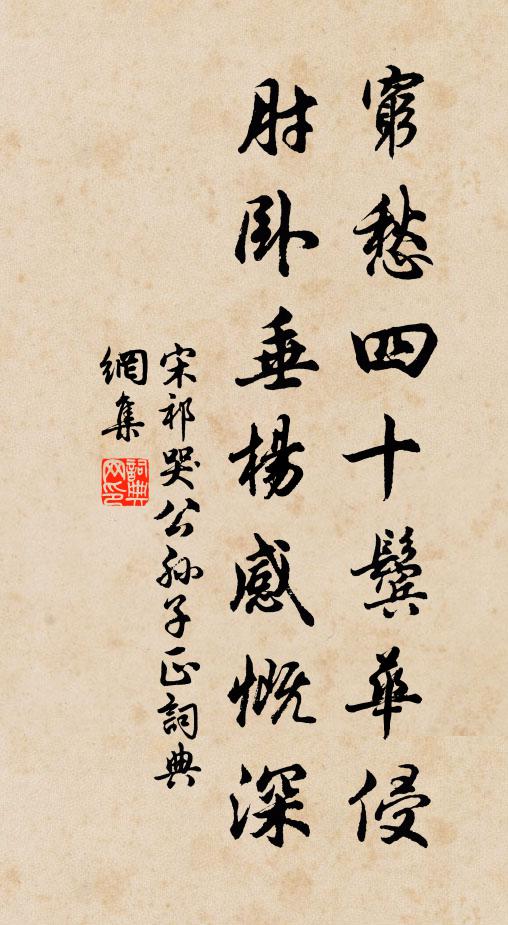 窮愁四十鬢華侵
肘臥垂楊感慨深
宋祁哭公孫子正詞典
網集
詞典網印